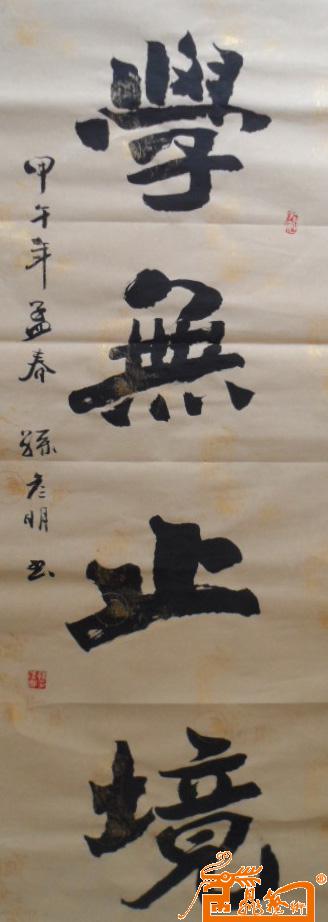 學無止境
甲午年孟春 孫彦明书